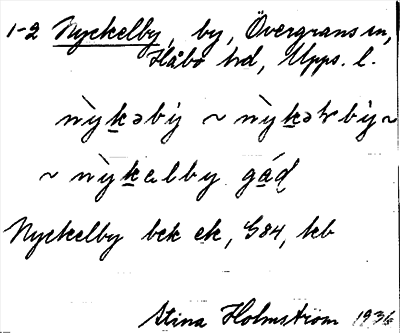 1-2 Nyckelby, by, Övergrans sn,
Håbo hd, Upps. l.
nỳkəbẏ ~ nỳkəɫbẏ ~
~ nỳkelby gád
Nyckelby bek ek, G84, kb
Stina Holmström 1936